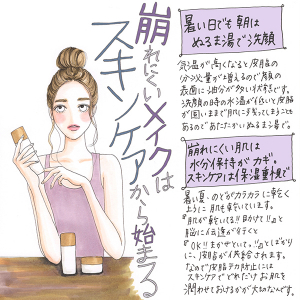 崩れにくいメイクは
スキンケアから始まる
暑い日でも朝は
ぬるま湯で洗顔
気温が高くなると皮脂の
分泌量が増えるので顔の
表面に油分が多い状態です。
洗顔の時の水温が低いと皮脂
が固いままで肌に残ってしまうことも
あるのであたたかいぬるま湯で。
崩れにくい肌は
水分保持がカギ。
スキンケアは保湿重視で
暑い夏、のどがカラカラに乾く
ように肌も乾いています。
『肌が乾いてる!!助けて!!』と
脳に伝達が行くと
『OK!!まかせといて。』とばかり
に、皮脂が供給されます。
なので皮脂テカリ防止には
スキンケアでどれだけお肌を
潤わせておけるかが大切なんです。